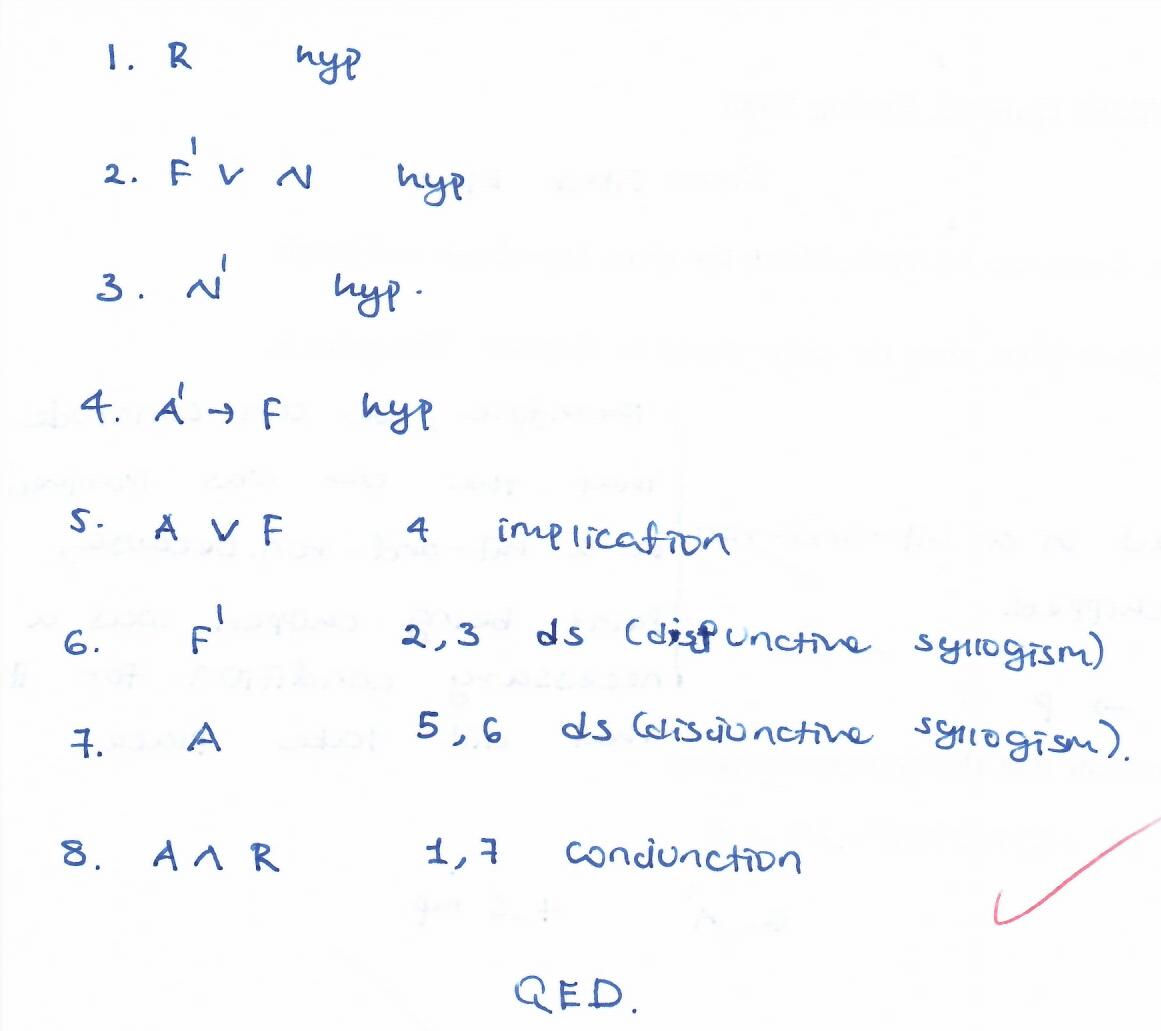 1. R hyp
2. F' ∨ N hyp
3. N' hyp.
4. A' → F hyp
5. A ∨ F 4 implication
6. F' 2,3 ds (disjunctive syllogism)
7. A 5,6 ds (disjunctive syllogism).
8. A ∧ R 1,7 conjunction
QED.